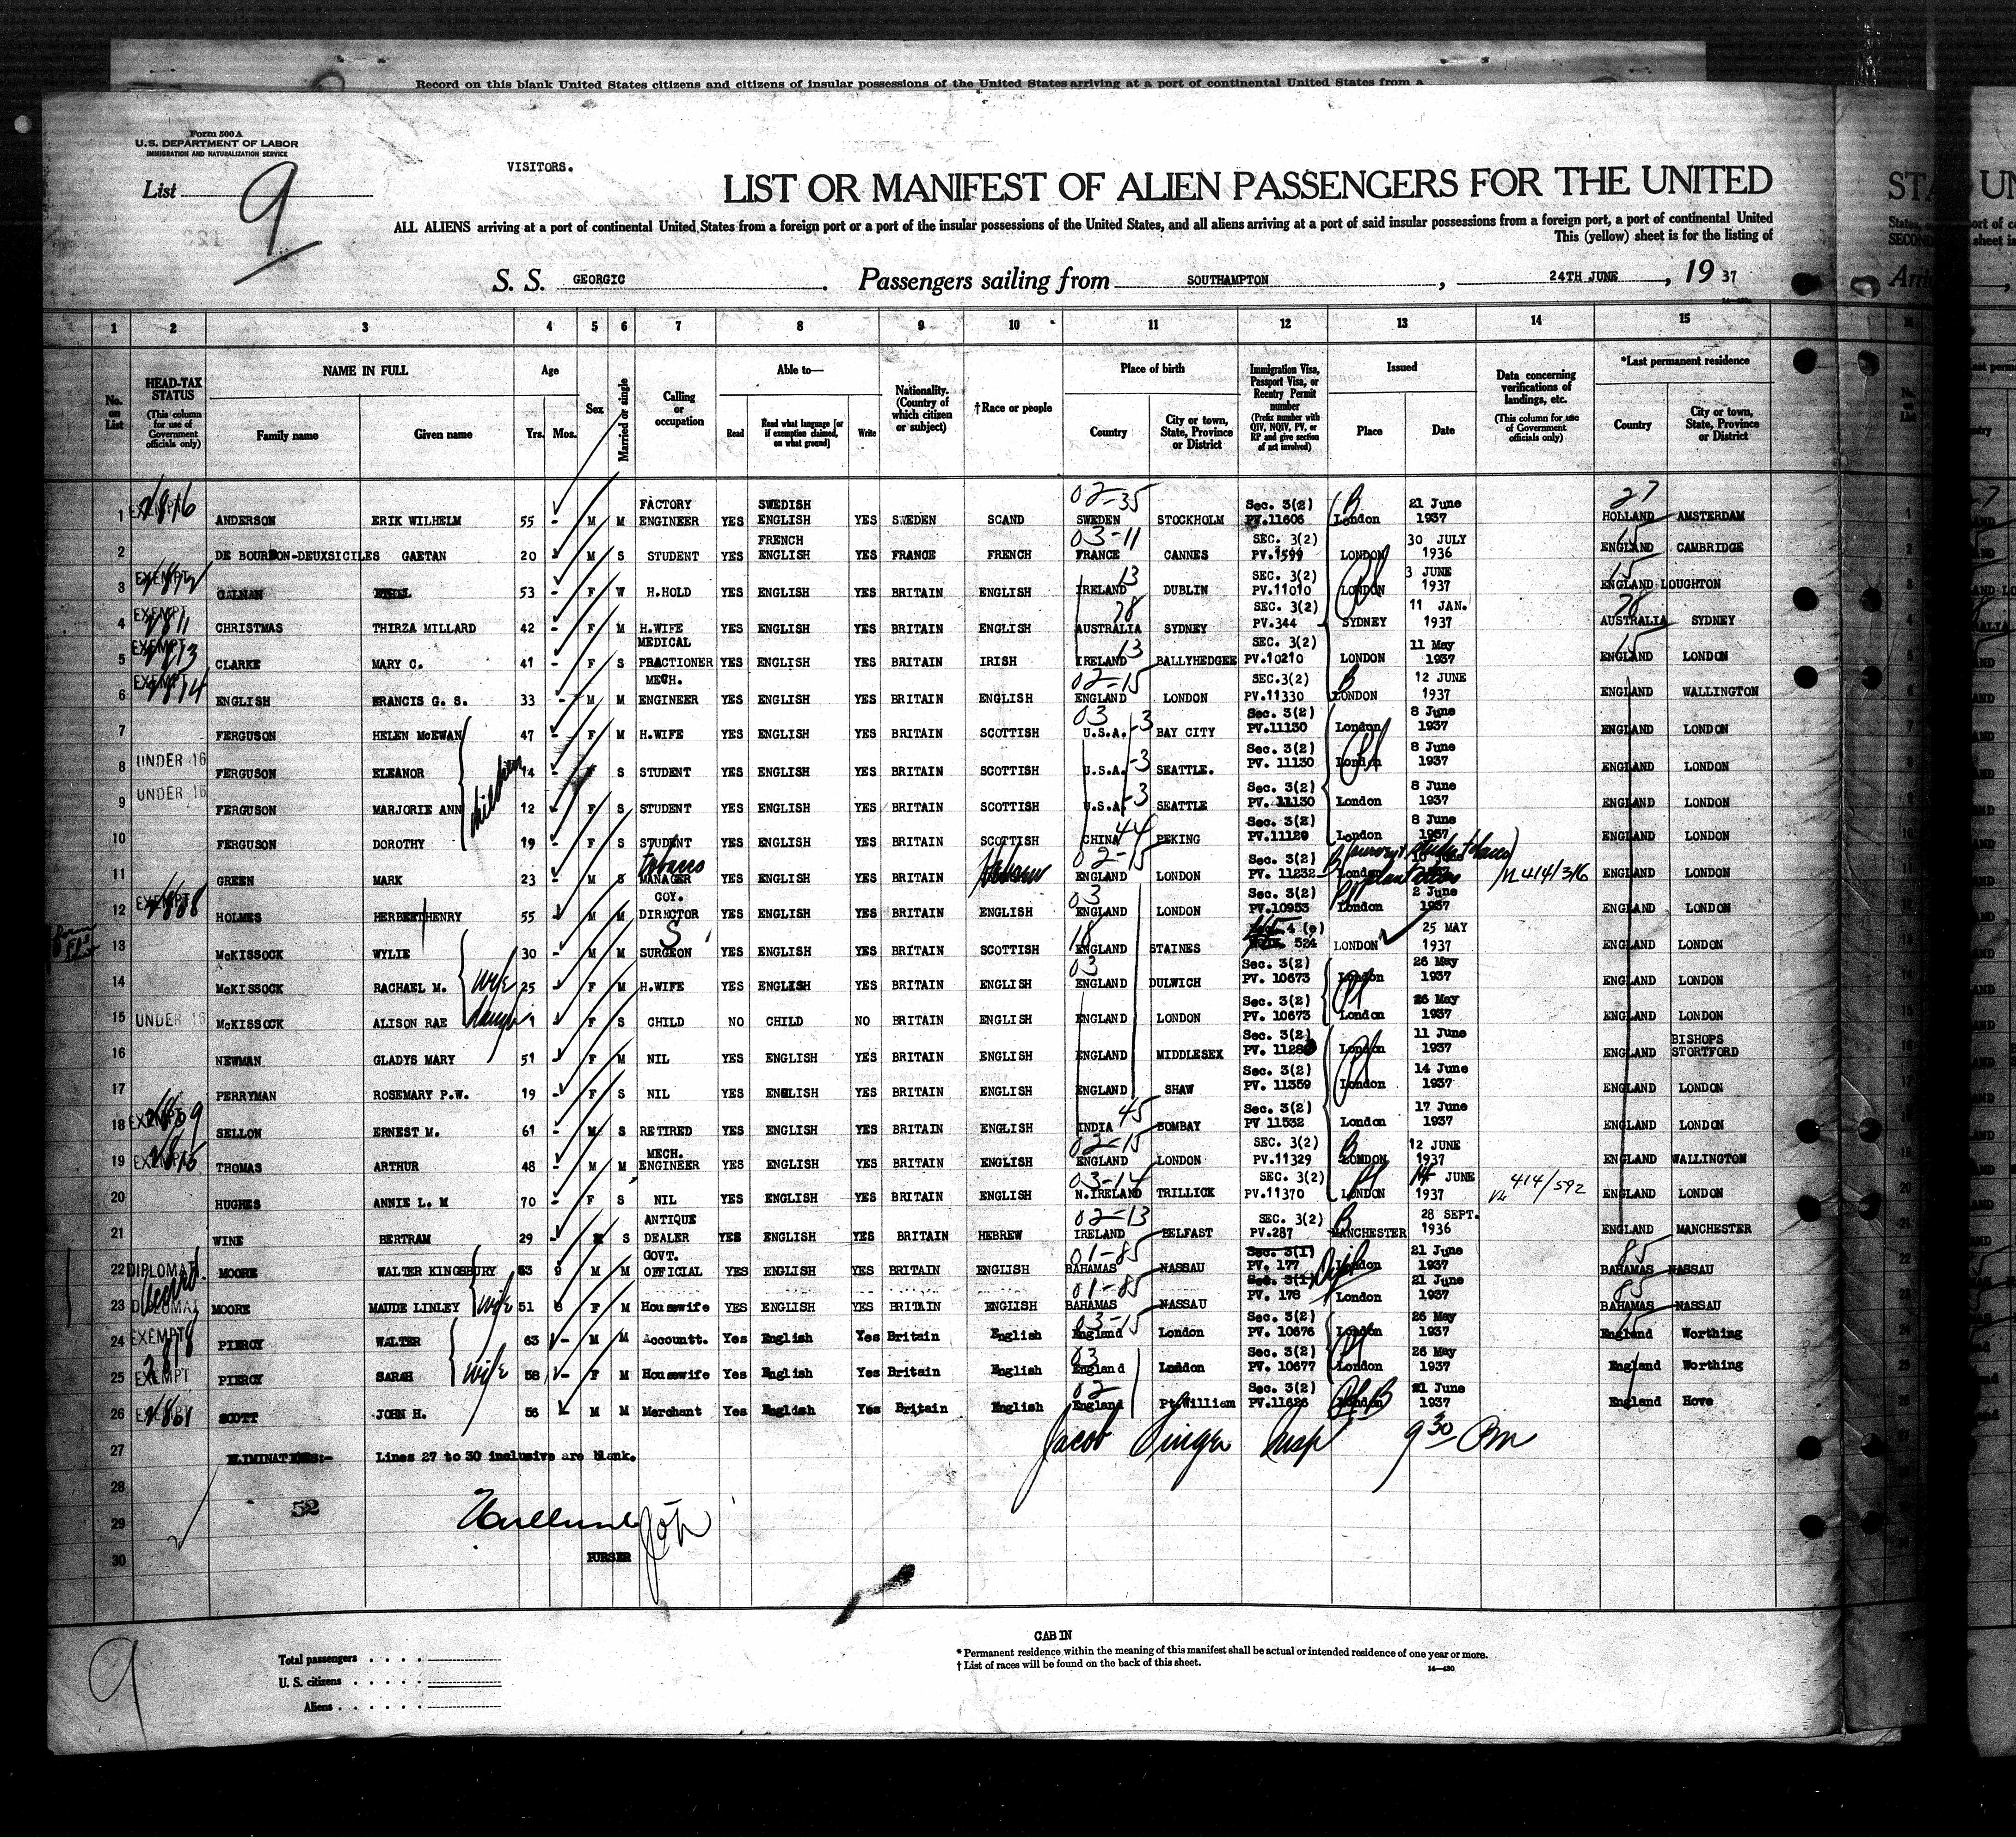 Record on this blank United States citizens and citizens of insular possessions of the United States arriving at a port of continental United States from a
Form 500 A
U.S. DEPARTMENT OF LABOR
IMMIGRATION AND NATURALIZATION SERVICE
List 9
VISITORS.
LIST OR MANIFEST OF ALIEN PASSENGERS FOR THE UNITED
ALL ALIENS arriving at a port of continental United States from a foreign port or a port of the insular possessions of the United States, and all aliens arriving at a port of said insular possessions from a foreign port, a port of continental United
This (yellow) sheet is for the listing of
S. S. GEORGIC. Passengers sailing from SOUTHAMPTON, 24TH JUNE, 19 37
1 2 3 4 5 6 7 8 9 10 11 12 13 14 15
No. on List
HEAD-TAX STATUS (This column for use of Government officials only)
NAME IN FULL Family name Given name
Age Yrs. Mos.
Sex
Married or single
Calling or occupation
Able to— Read Read what language [or if exemption claimed, on what ground] Write
Nationality. (Country of which citizen or subject)
†Race or people
Place of birth Country City or town, State, Province or District
Immigration Visa, Passport Visa, or Reentry Permit number (Prefix number with QIV, NQIV, PV, or RP and give section of act involved)
Issued Place Date
Data concerning verifications of landings, etc. (This column for use of Government officials only)
*Last permanent residence Country City or town, State, Province or District
1 ANDERSON ERIK WILHELM 55 - M M FACTORY ENGINEER YES SWEDISH ENGLISH YES SWEDEN SCAND 02-35 SWEDEN STOCKHOLM Sec. 3(2) PV.11606 London 21 June 1937 27 HOLLAND AMSTERDAM
2 DE BOURBON-DEUXSICILES GAETAN 20 M S STUDENT YES FRENCH ENGLISH YES FRANCE FRENCH 03-11 FRANCE CANNES SEC. 3(2) PV.1599 LONDON 30 JULY 1936 ENGLAND CAMBRIDGE
3 EXEMPT 53 - F W H.HOLD YES ENGLISH YES BRITAIN ENGLISH 13 IRELAND DUBLIN SEC. 3(2) PV.11010 LONDON 3 JUNE 1937 15 ENGLAND LOUGHTON
4 EXEMPT CHRISTMAS THIRZA MILLARD 42 - F M H.WIFE YES ENGLISH YES BRITAIN ENGLISH 78 AUSTRALIA SYDNEY SEC. 3(2) PV.344 SYDNEY 11 JAN. 1937 78 AUSTRALIA SYDNEY
5 EXEMPT CLARKE MARY C. 41 - F S MEDICAL PRACTIONER YES ENGLISH YES BRITAIN IRISH 13 IRELAND BALLYHEDGEE SEC. 3(2) PV.10210 LONDON 11 May 1937 15 ENGLAND LONDON
6 EXEMPT ENGLISH FRANCIS G. S. 33 - M M MECH. ENGINEER YES ENGLISH YES BRITAIN ENGLISH 02-15 ENGLAND LONDON SEC.3(2) PV.11330 LONDON 12 JUNE 1937 ENGLAND WALLINGTON
7 FERGUSON HELEN McEWAN 47 - F M H.WIFE YES ENGLISH YES BRITAIN SCOTTISH 03 U.S.A. -3 BAY CITY Sec. 3(2) PV.11130 London 8 June 1937 ENGLAND LONDON
8 UNDER 16 FERGUSON ELEANOR children 14 S STUDENT YES ENGLISH YES BRITAIN SCOTTISH U.S.A. -3 SEATTLE. Sec. 3(2) PV. 11130 London 8 June 1937 ENGLAND LONDON
9 UNDER 16 FERGUSON MARJORIE ANN 12 F S STUDENT YES ENGLISH YES BRITAIN SCOTTISH U.S.A. -3 SEATTLE Sec. 3(2) PV. 11130 London 8 June 1937 ENGLAND LONDON
10 FERGUSON DOROTHY 19 - F S STUDENT YES ENGLISH YES BRITAIN SCOTTISH CHINA 44 PEKING Sec. 3(2) PV.11129 London 8 June 1937 ENGLAND LONDON
11 GREEN MARK 23 - M S tobacco MANAGER YES ENGLISH YES BRITAIN Hebrew 02-15 ENGLAND LONDON Sec. 3(2) PV. 11232 London plantations 414/316 ENGLAND LONDON
12 EXEMPT HOLMES HERBERT HENRY 55 - M M COY. DIRECTOR YES ENGLISH YES BRITAIN ENGLISH 03 ENGLAND LONDON Sec. 3(2) PV.10953 London 2 June 1937 ENGLAND LONDON
13 McKISSOCK WYLIE 30 - M M SURGEON YES ENGLISH YES BRITAIN SCOTTISH ENGLAND STAINES 4 (e) 524 LONDON 25 MAY 1937 ENGLAND LONDON
14 McKISSOCK RACHAEL M. wife 25 F M H.WIFE YES ENGLISH YES BRITAIN ENGLISH 03 ENGLAND DULWICH Sec. 3(2) PV. 10673 London 26 May 1937 ENGLAND LONDON
15 UNDER 16 McKISSOCK ALISON RAE 1 F S CHILD NO CHILD NO BRITAIN ENGLISH ENGLAND LONDON Sec. 3(2) PV. 10673 London 26 May 1937 ENGLAND LONDON
16 NEWMAN GLADYS MARY 51 F M NIL YES ENGLISH YES BRITAIN ENGLISH ENGLAND MIDDLESEX Sec. 3(2) London 11 June 1937 ENGLAND BISHOPS STORTFORD
17 PERRYMAN ROSEMARY P.W. 19 - F S NIL YES ENGLISH YES BRITAIN ENGLISH ENGLAND SHAW Sec. 3(2) PV. 11359 London 14 June 1937 ENGLAND LONDON
18 EXEMPT SELLON ERNEST M. 61 - M S RETIRED YES ENGLISH YES BRITAIN ENGLISH INDIA 45 BOMBAY Sec. 3(2) PV 11532 London 17 June 1937 ENGLAND LONDON
19 EXEMPT THOMAS ARTHUR 48 - M M MECH. ENGINEER YES ENGLISH YES BRITAIN ENGLISH 02-15 ENGLAND LONDON SEC. 3(2) PV.11329 LONDON 12 JUNE 1937 ENGLAND WALLINGTON
20 HUGHES ANNIE L. M 70 - F S NIL YES ENGLISH YES BRITAIN ENGLISH 03-14 N.IRELAND TRILLICK SEC. 3(2) PV.11370 LONDON 14 JUNE 1937 414/592 ENGLAND LONDON
21 WINE BERTRAM 29 - S ANTIQUE DEALER YES ENGLISH YES BRITAIN HEBREW 02-13 IRELAND BELFAST SEC. 3(2) PV.287 MANCHESTER 28 SEPT. 1936 ENGLAND MANCHESTER
22 DIPLOMAT MOORE WALTER KINGSBURY 53 9 M M GOVT. OFFICIAL YES ENGLISH YES BRITAIN ENGLISH 01-85 BAHAMAS NASSAU Sec. 3(1) PV. 177 London 21 June 1937 85 BAHAMAS NASSAU
23 MOORE MAUDE LINLEY wife 51 F M Housewife YES ENGLISH YES BRITAIN ENGLISH 01-85 BAHAMAS NASSAU Sec. 3(1) PV. 178 London 21 June 1937 85 BAHAMAS NASSAU
24 EXEMPT PIERCY WALTER 63 - M M Accountt. Yes English Yes Britain English 03-15 England London Sec. 3(2) PV. 10676 London 26 May 1937 England Worthing
25 EXEMPT PIERCY SARAH wife 58 - F M Housewife Yes English Yes Britain English 03 England London Sec. 3(2) PV. 10677 London 26 May 1937 England Worthing
26 SCOTT JOHN H. 56 M M Merchant Yes English Yes Britain English 02 England Pt.William Sec. 3(2) London 21 June 1937 England Hove
27 ELIMINATIONS:- Lines 27 to 30 inclusive are blank.
Jacob Insp 9 30 Pm
28
52
29
30 PURSER
9
CABIN
* Permanent residence within the meaning of this manifest shall be actual or intended residence of one year or more.
† List of races will be found on the back of this sheet.
14—430
Total passengers
U. S. citizens
Aliens